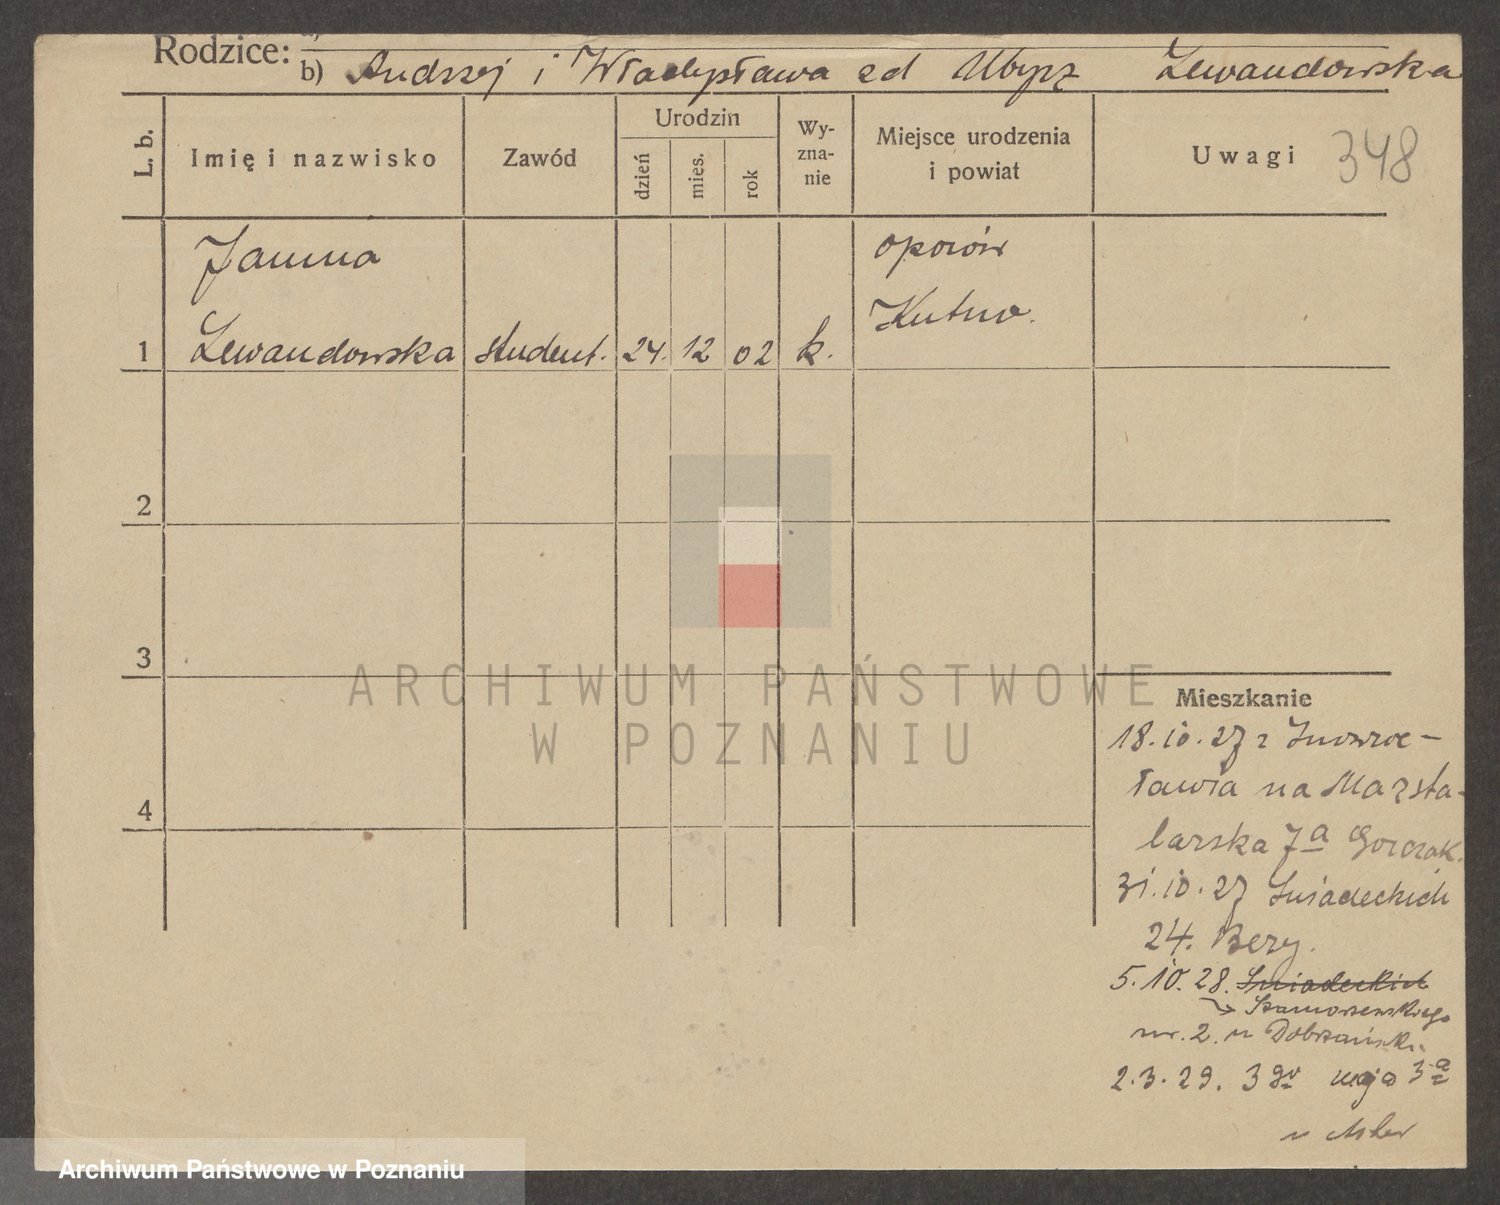 Rodzice:
b) Andrzej i Władysława zd Ubysz Lewandowska
L. b. Imię i nazwisko Zawód Urodzin dzień mies. rok Wy-zna-nie Miejsce urodzenia i powiat Uwagi 348
Janina
Oporów
Kutno.
1 Lewandowska student. 24. 12 02 k.
2
3
4
ARCHIWUM PAŃSTWOWE
W POZNANIU
Mieszkanie
18.10.27 z Inowroc-
ławia na Maszta-
larska 7a Gorczak.
31.10.27 Śniadeckich
24. Bezy.
5.10.28. Śniadeckich
Szamarzewskiego
nr. 2. u Dobrzański
2.3.29. 3go maja 3a
u
Archiwum Państwowe w Poznaniu